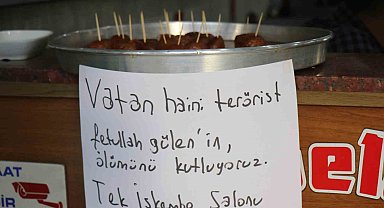 Vatan haini terörist
fetullah gülen'in,
ölümünü kutluyoruz.
Tek işkembe Salonu